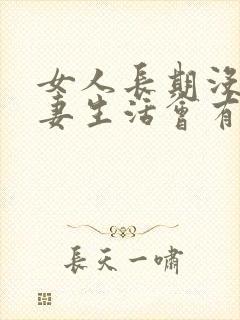 女人長期沒
妻生活會有
長天一嘯